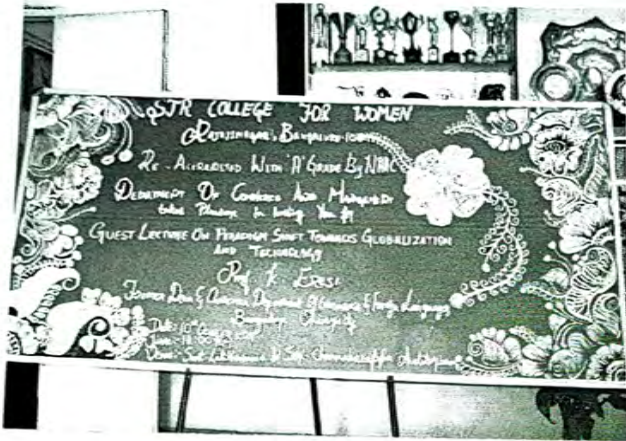 SJR COLLEGE FOR WOMEN
RAJAJINAGAR, BANGALORE
RE-ACCREDITED WITH 'A' GRADE BY NAAC
DEPARTMENT OF COMMERCE AND MANAGEMENT
takes Pleasure in inviting You for
GUEST LECTURE ON PARADIGM SHIFT TOWARDS GLOBALIZATION
AND TECHNOLOGY
Prof. K. ERESI
Former Dean & Chairman, Department of Commerce & Foreign Languages
Bangalore University
Date: 10th
Time: 10
Venue: Smt.